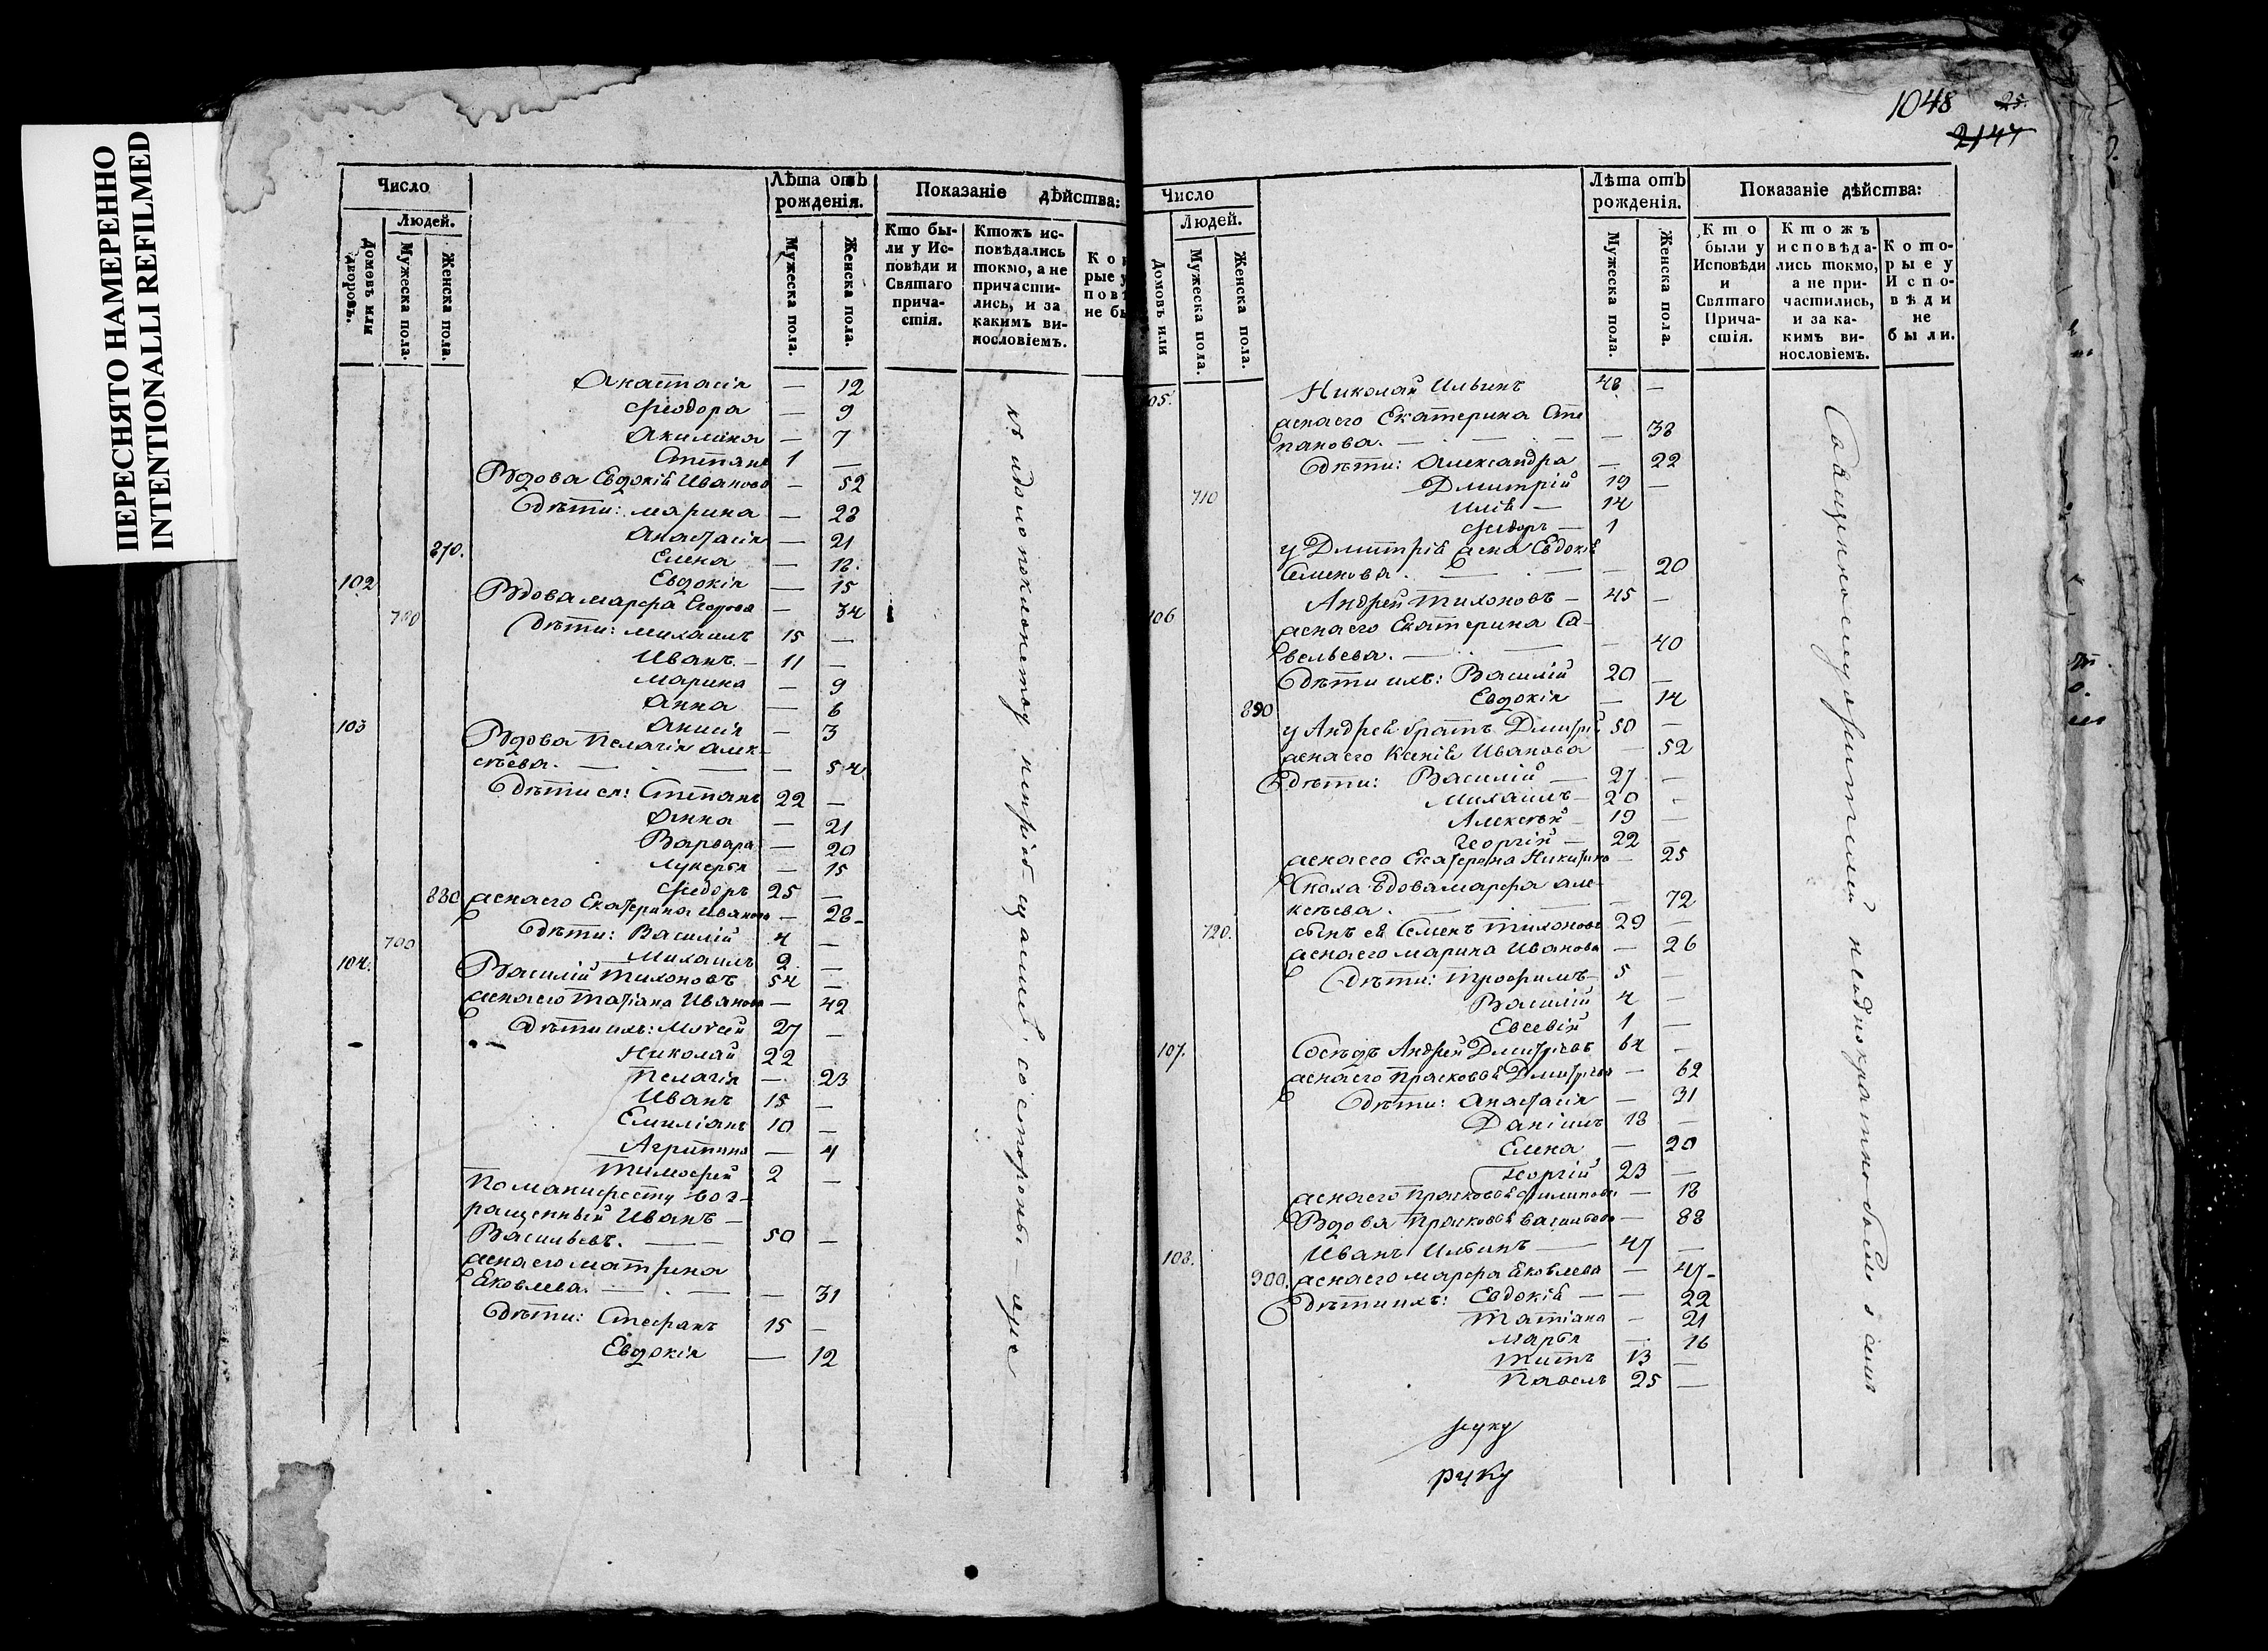 ПЕРЕСНЯТО НАМЕРЕННО
INTENTIONALLI REFILMED
Число
Людей.
Домовъ или дворовъ.
Мужеска пола.
Женска пола.
Лѣта отъ рожденія.
Мужеска пола.
Женска пола.
Показаніе дѣйства:
Кто бы-
ли у Ис-
повѣди и
Святаго
прича-
стія.
Ктожъ ис-
повѣдались
токмо, а не
причасти-
лись, и за
какимъ ви-
нословіемъ.
Анастасія — 12
Феодора — 9
Акилина — 7
Степанъ 1 —
Вдова Евдокія Иванова — 52
Дѣти: Марина — 23
Анастасія — 21
870. Елена — 18.
Евдокія — 15
102 Вдова Марфа Егорова — 34
Дѣти: Михаилъ 15 —
Иванъ — 11 —
Марина — 9
Анна — 6
Анисія — 3
103 Вдова Пелагія Алек-
сѣева. — — — 54
Дѣти ея: Степанъ 22 —
Анна — 21
Варвара — 20
Лукерья — 15
Феодоръ 25 —
880 жена его Екатерина Иванова — 28
Дѣти: Василій 4 —
700 Михаилъ 2 —
104. Василій Тихоновъ 54 —
жена его Татіана Иванова — 42
Дѣти ихъ: Моѵсей 27 —
Николай 22
Пелагія — 23
Иванъ 15 —
Емиліанъ 10 —
Агрипина — 4
Тимофей 2 —
По манифесту воз-
ращенный Иванъ —
Васильевъ. — 50 —
жена его Матрина
Яковлева. — — 31
Дѣти: Стефанъ 15 —
Евдокія — 12
къ идолопоклонству
со стороны
1048 25.
2147
Число
Людей.
Домовъ или
Мужеска пола.
Женска пола.
Лѣта отъ рожденія.
Мужеска пола.
Женска пола.
Показаніе дѣйства:
Кто
были у
Исповѣди
и
Святаго
Прича-
стія.
Ктожъ
исповѣда-
лись токмо,
а не при-
частились,
и за ка-
кимъ ви-
нословіемъ.
Кото-
рые у
Испо-
вѣди
не
были.
05. Николай Ильинъ 48 —
жена его Екатерина Сте
панова. — — 38
Дѣти: Александра — 22
Дмитрій 19 —
710 Илія — 14
Феодоръ — 1
у Дмитрія жена Евдокія
Семенова. — — 20
106 Андрей Тихоновъ — 45 —
жена его Екатерина Са-
вельева. — — 40
Дѣти ихъ: Василій 20 —
890 Евдокія — 14
у Андрея братъ Дмитрій 50 —
жена его Ксенія Иванова — 52
Дѣти: Василій — 27 —
Михаилъ — 20 —
Алексѣй — 19 —
Георгій — 22 —
жена его Екатерина Никитина — 25
вдова Марфа Але-
ксѣева. — — 72
720. сынъ ея Семенъ Тихоновъ 29 —
жена его Марина Иванова — 26
Дѣти: Трофимъ — 5 —
Василій 4 —
Евсевій 1 —
107. Сосѣдъ Андрей Дмитріевъ 64 —
жена его Прасковья Дмитріева — 62
Дѣти: Анастасія — 31
Даніилъ 18 —
Елена — 20
Георгій 23 —
жена его Прасковья Филипова — 18
Вдова Прасковья Васильева — 88
108. Иванъ Ильинъ — 47 —
900. жена его Марфа Яковлева — 47 —
Дѣти ихъ: Евдокія — — 22
Татіана — 21
Марья — 16
Титъ 13 —
Павелъ 25 —
Священнослужителей неоднократно
руку
руку